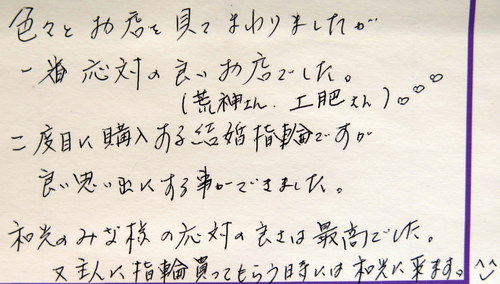 色々とお店を見てまわりましたが
一番応対の良いお店でした。
(荒神さん、工肥さん)
二度目に購入する結婚指輪ですが
良い思い出にする事ができました。
和光のみな様の応対の良さは最高でした。
又主人に指輪買ってもらう時には和光に来ます。^^